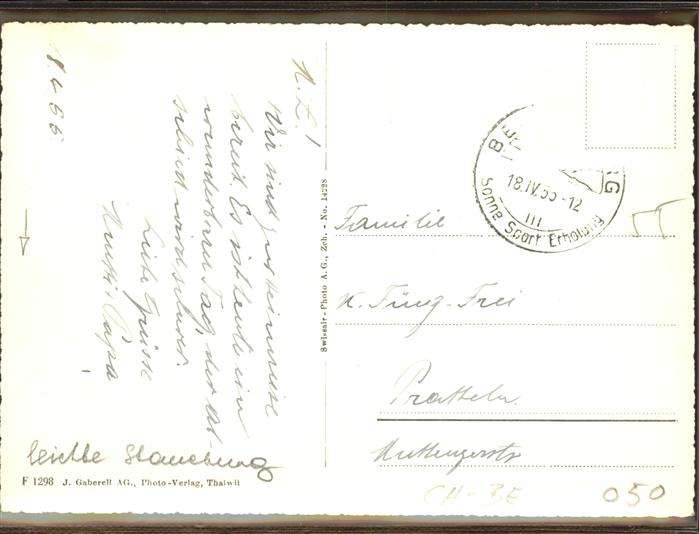 18.4.55
N. L.!
Wir sind zur Heimreise
bereit. Es ist heute ein
wunderbarer Tag, der Ab-
schied wird schwer.
Liebe Grüsse
Mutti & Papa
leichte Stauchung
F 1298 J. Gaberell AG., Photo-Verlag, Thalwil
Swissair-Photo A.G., Zch. - No. 14228
18.IV.55-12
III
Sonne Sport Erholung
Familie
K. Füng-Frei
Pratteln
Muttenzerstr
CH-BE
050